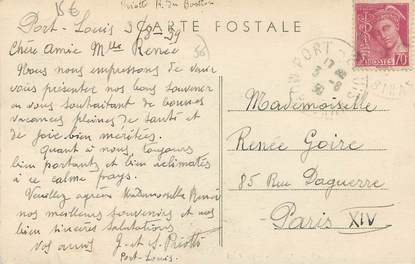 8€
Priotti R. du Bastion
CARTE POSTALE
Port-Louis 3/8-39
Chère Amie Mlle Renée
Nous nous empressons de venir
vous présenter nos bons souvenirs
en vous souhaitant de bonnes
vacances pleines de santé et
de joie bien méritées.
Quant à nous, toujours
bien portants et bien aclimatés
à ce calme pays.
Veuillez agréer Mademoiselle Renée
nos meilleurs souvenirs et nos
bien sincères salutations
Vos amis J. et S. Priotti
Port-Louis.
PORT
17
3-8
POSTES
70
Mademoiselle
Renée Goire
85 Rue Daguerre
Paris XIV